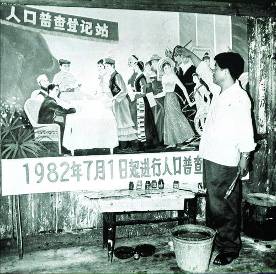 人口普查登记站
1982年7月1日起进行人口普查